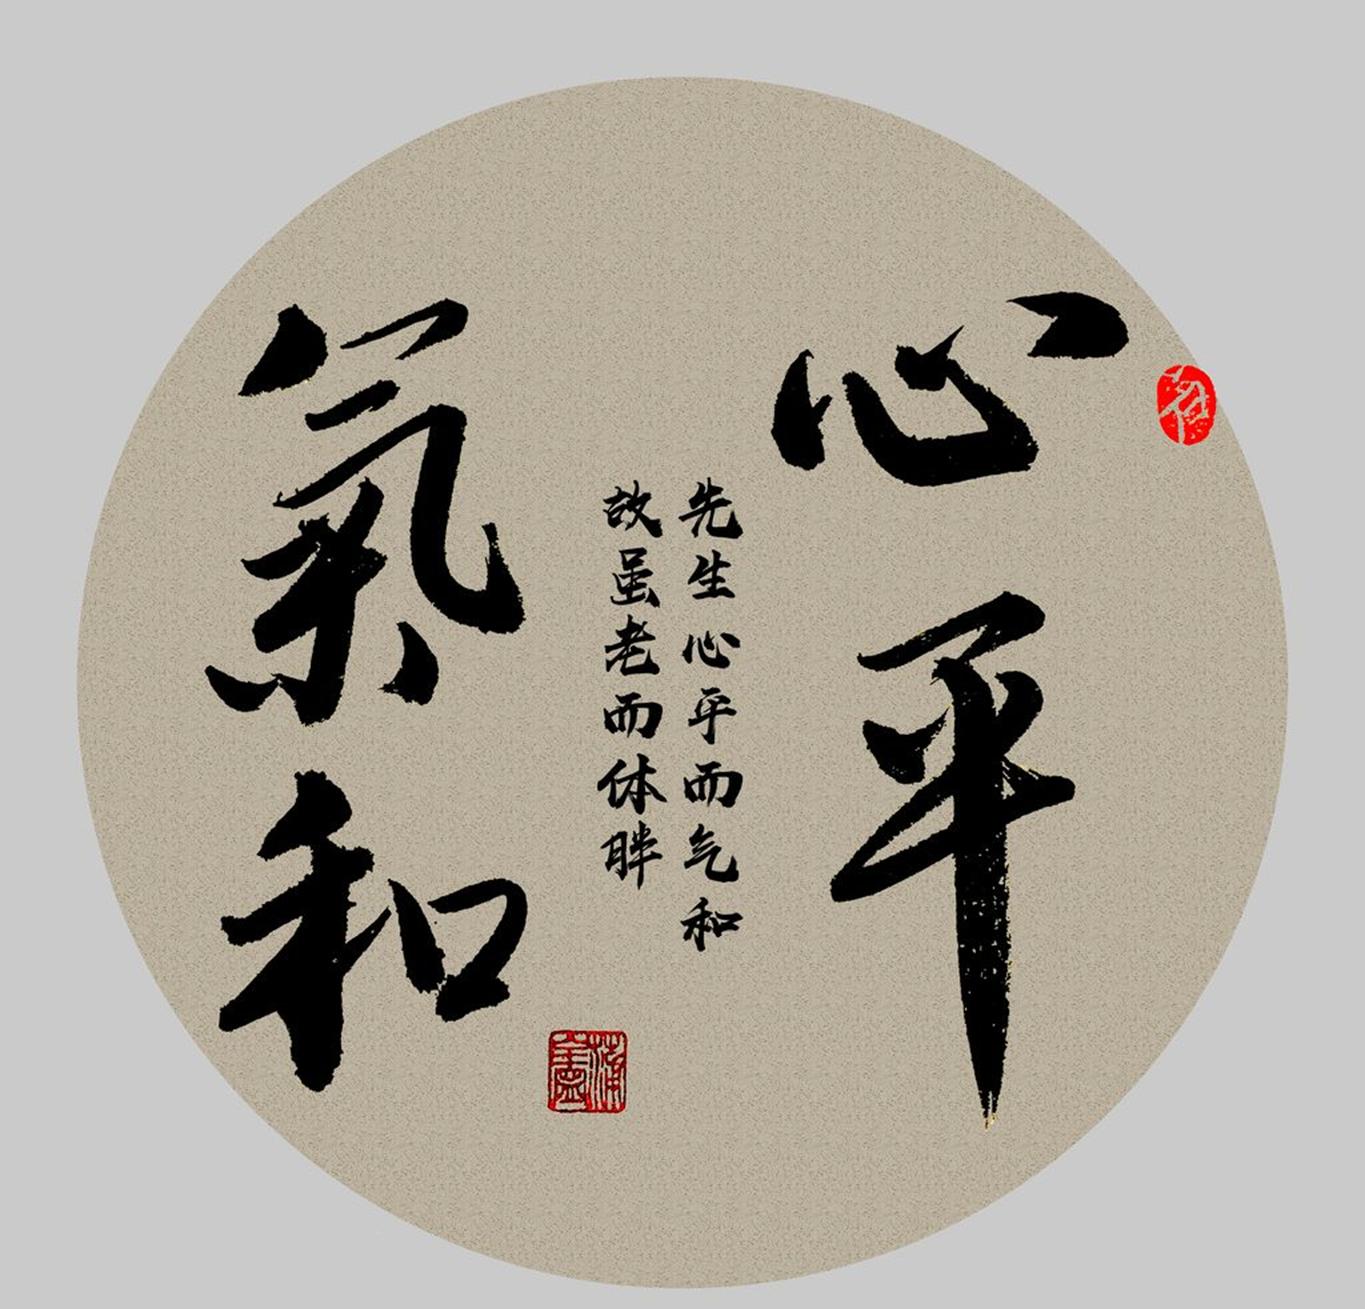 心平
先生心平而气和
故虽老而体胖
氣和